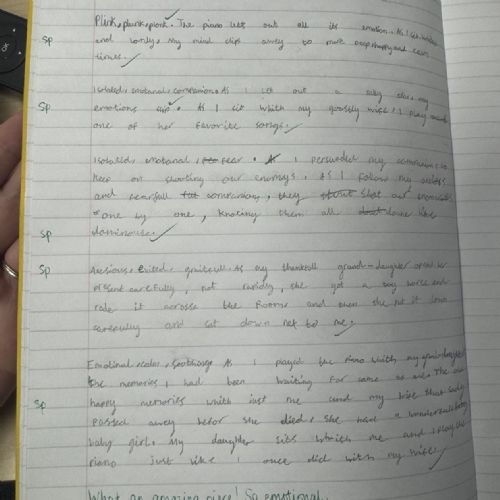 Plink, plunk, plonk. The piano lets out all its emotion. As I sit
sp and lonly, my mind slips away to more happy and calm
times.
Isolated, emotanal, companion. As I let out a my
sp emotions As I sit whith my wife, I play
one of her favorite songs.
Isolated, emotanal, fear. I persweded my companions to
keep on shooting our enemys. As I follow my
and fearfull companions, they shot our enemies
one by one, knoking them all down like
sp dominouse.
sp Anxious, exited, As my grand-daughter opend her
present carefully, not rapidly, she got a toy horse and
rode it acrosse the room and then she put it down
carefully and sat down next to me.
Emotinal, calm, As I played the piano whith my grand-daughter
the memories I had been waiting for came to me. The
sp happy memories whith just me and my wife that sadly
passed away befor she died, she had a
baby girl. My daughter sits whith me and I play the
piano just like I once did with my wife.
What an amazing piece! So emotional.